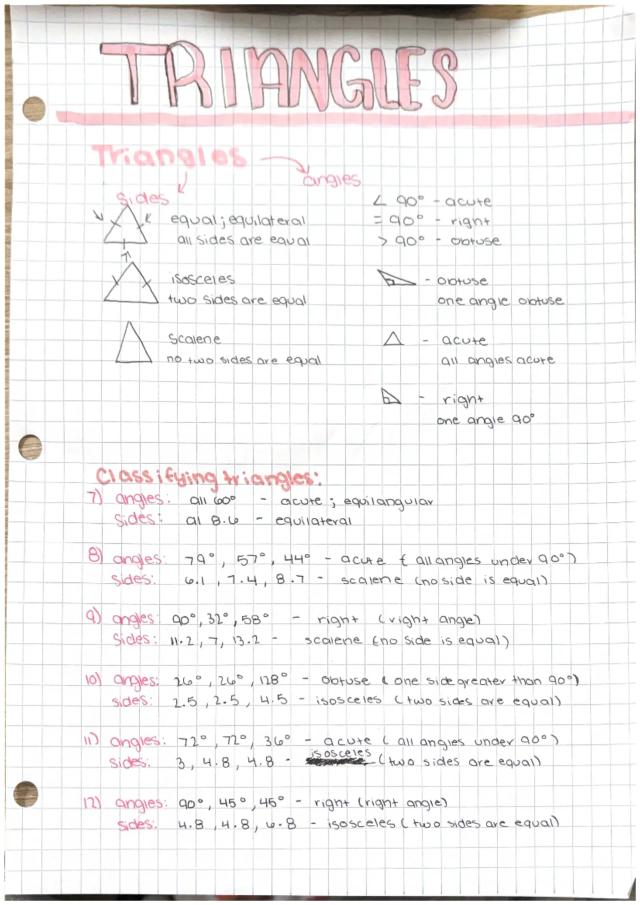 TRIANGLES
Triangles
angles
sides
equal; equilateral
all sides are equal
isosceles
two sides are equal
scalene
no two sides are equal
∠ 90° - acute
= 90° - right
> 90° - obtuse
- obtuse
one angle obtuse
- acute
all angles acute
- right
one angle 90°
Classifying triangles:
7) angles: all 60° - acute ; equilangular
sides: al 8.6 - equilateral
8) angles: 79°, 57°, 44° - acute ( all angles under 90°)
sides: 6.1, 7.4, 8.7 - scalene (no side is equal)
9) angles: 90°, 32°, 58° - right (right angle)
sides: 11.2, 7, 13.2 - scalene (no side is equal)
10) angles: 26°, 26°, 128° - obtuse ( one side greater than 90°)
sides: 2.5, 2.5, 4.5 - isosceles ( two sides are equal)
11) angles: 72°, 72°, 36° - acute ( all angles under 90°)
sides: 3, 4.8, 4.8 - isosceles (two sides are equal)
12) angles: 90°, 45°, 45° - right (right angle)
sides: 4.8, 4.8, 6.8 - isosceles ( two sides are equal)